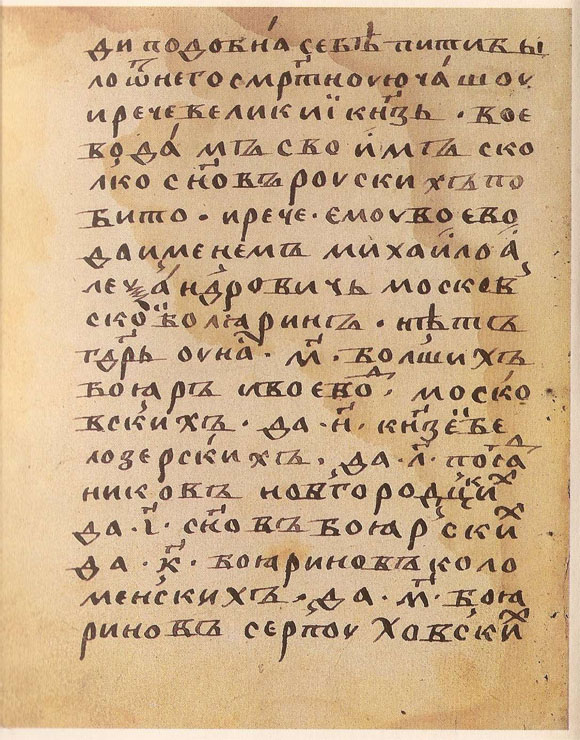 ди подобна́ себѣ̀ пити бы
ло ѿ него смрт҃ною ча́шоу
и рече великиї кн҃зь . вое
вода́ мъ сво и́мъ ско
лко сн҃овъ роускихъ по
бито . и рече . ємоу воево
да именемъ миха́ило а́
леѯа́ндрович ь москов
ско̑ боляринъ . нѣтъ
гд҃рь оу на̑ . м҃ . болшихъ
бояръ и воевоⷣ . моско
вскихъ . да . н҃ . кн҃зе́й бе
лозерски́хъ . да . л҃ . посаⷣ
никовъ новгородцкиⷯ
да . і҃ . сн҃овъ боя́рскиⷯ
да . к҃ . бояриновъ коло
менскихъ . да . м҃ . боя
риновъ серпоуховскиⷯ